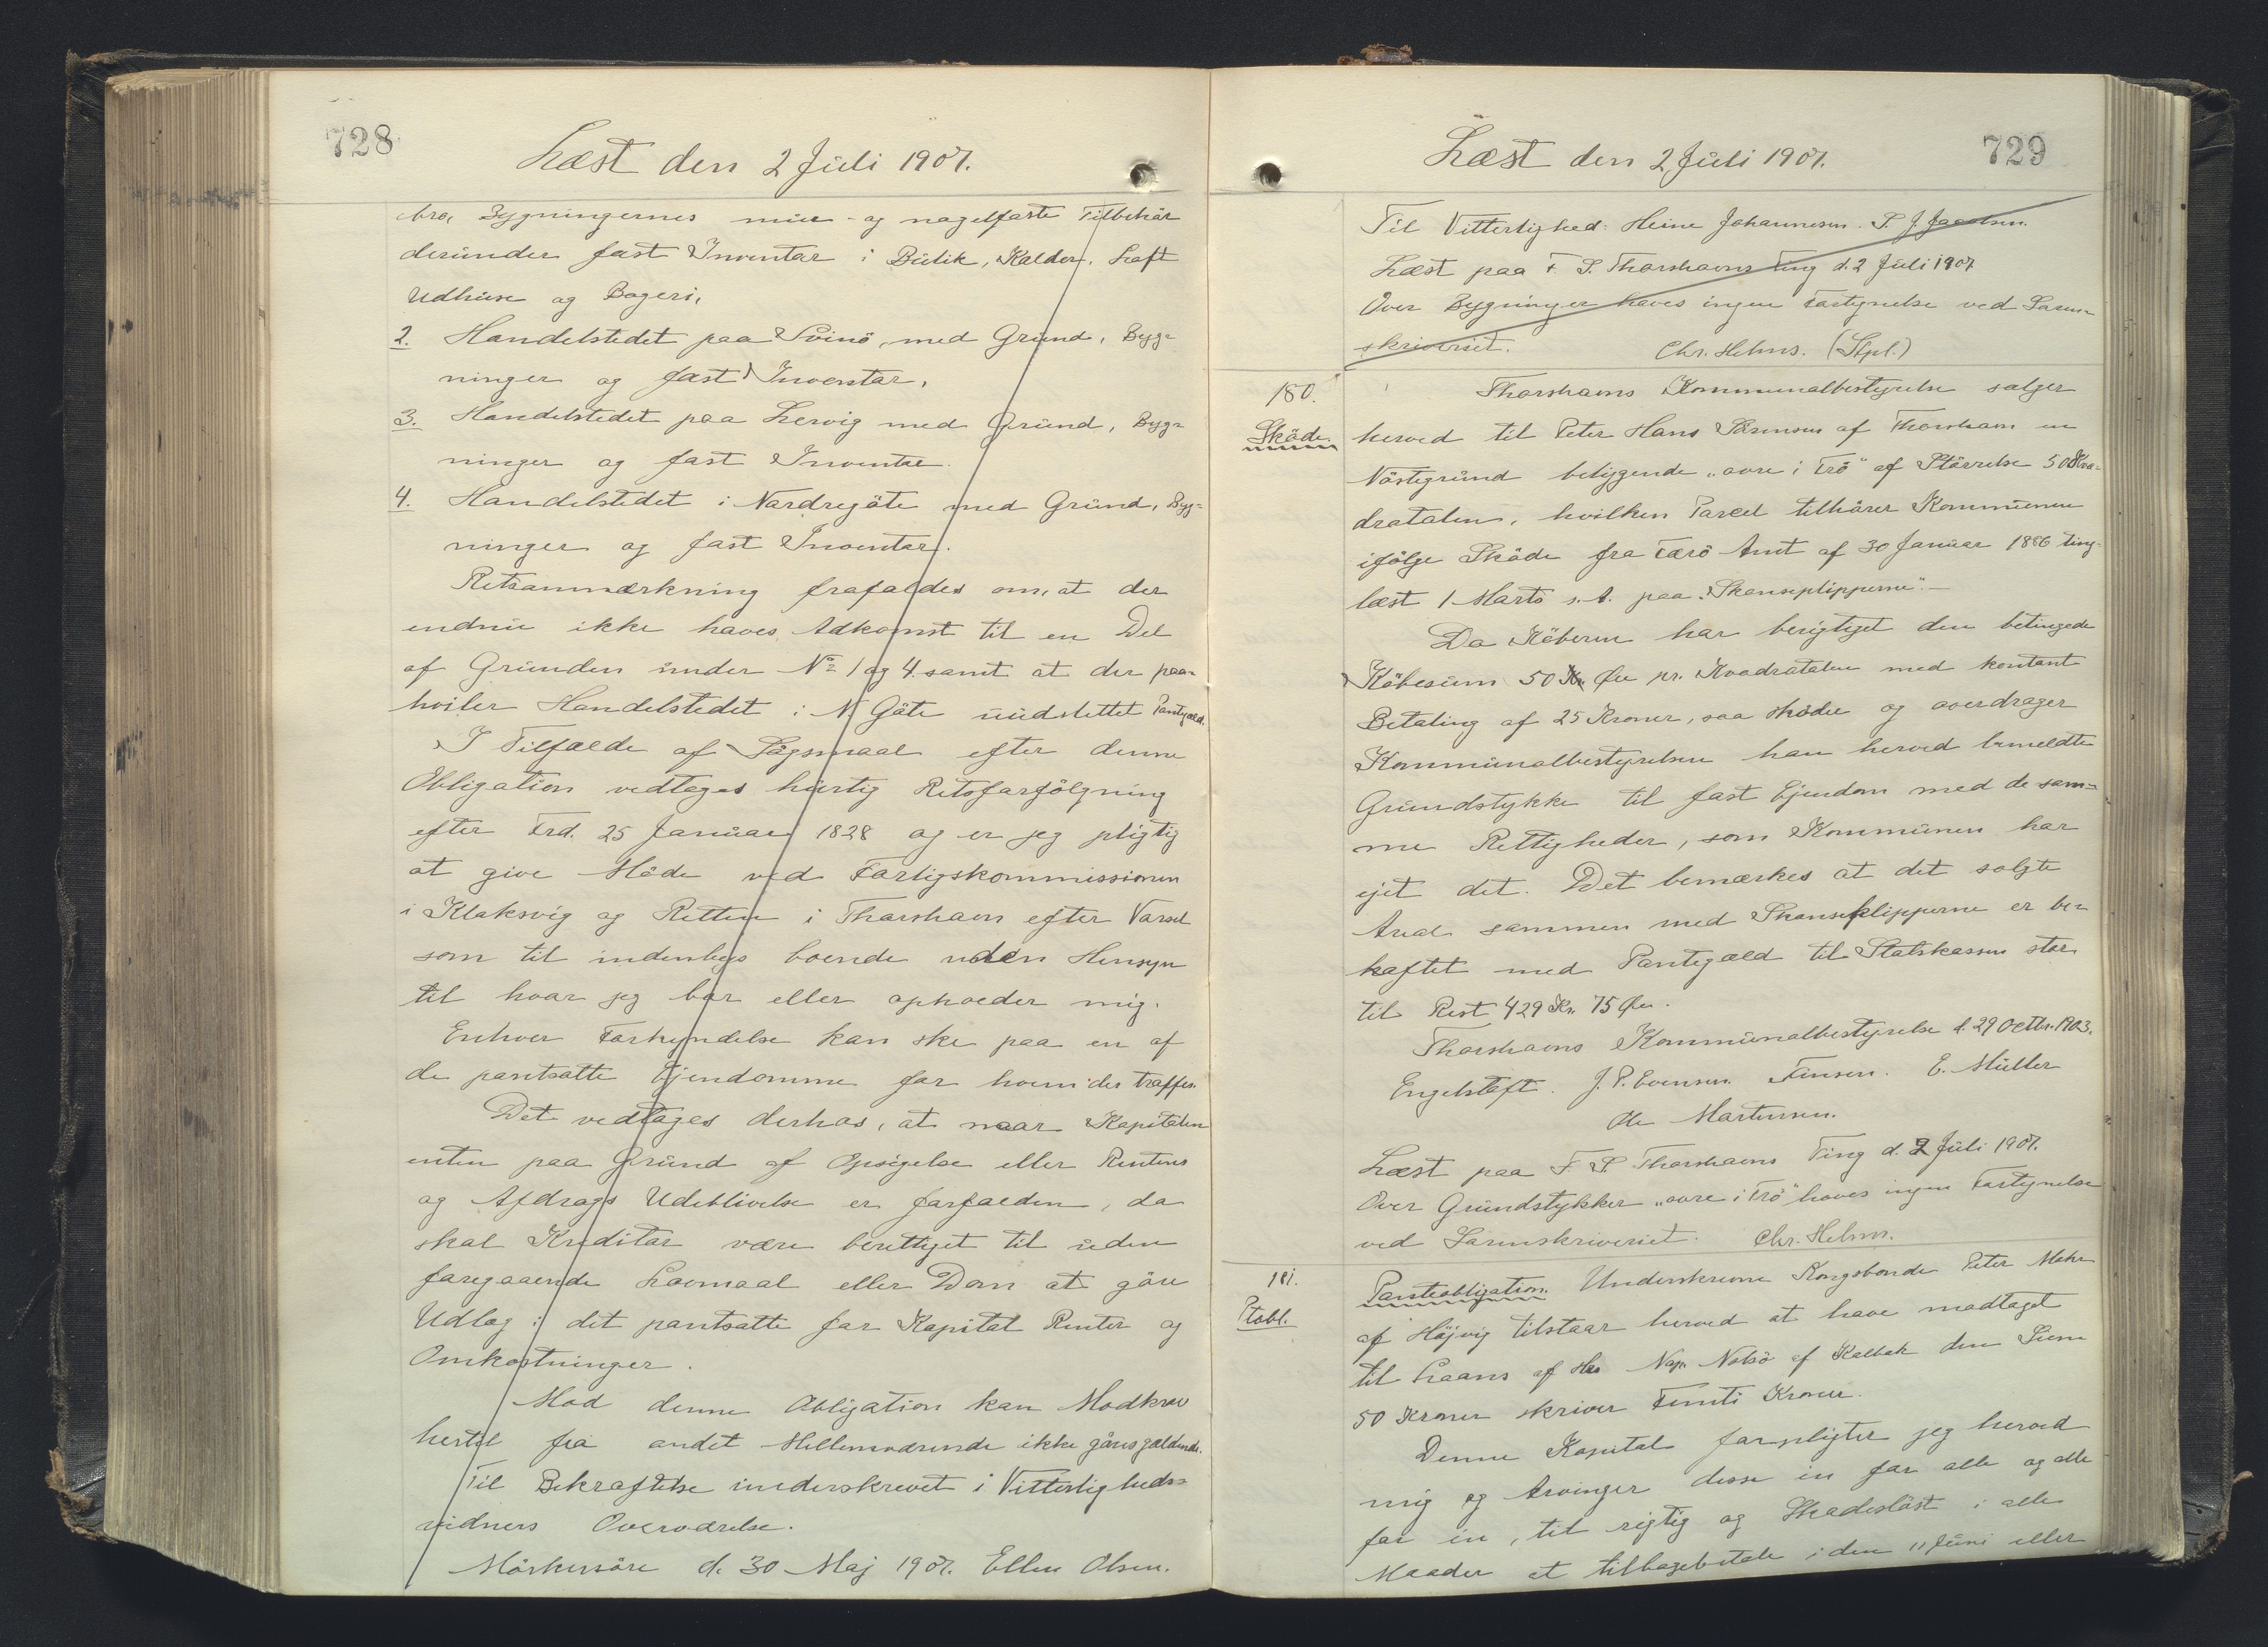 728
Læst den 2 Juli 1907.
bro, Bygningernes mur- og nagelfaste Tilbehör
derunder fast Inventar i Butik, Kælder, Loft
Udhuse og Bageri,
2. Handelstedet paa Svinö, med Grund, Byg=
ninger og fast Inventar,
3. Handelstedet paa Lervig med Grund, Byg=
ninger og fast Inventar.
4. Handelstedet i Nordregöte med Grund, Byg=
ninger og fast Inventar.
Retsanmærkning frafaldes om, at der
endnu ikke haves Adkomst til en Del
af Grunden under No 1 og 4 samt at der paa=
hviler Handelstedet i N. Göte uudslettet Pantegæld.
I Tilfælde af Sögsmaal efter denne
Obligation vedtages hurtig Retsforfölgning
efter Frd. 25 Januar 1828 og er jeg pligtig
at give Möde ved Forligskommissionen
i Klaksvig og Retten i Thorshavn efter Varsel
som til indenbys boende uden Hensyn
til hvor jeg bor eller opholder mig.
Enhver Forkyndelse kan ske paa en af
de pantsatte Ejendomme for hvem der træffes.
Det vedtages derhos, at naar Kapitalen
enten paa Grund af Opsigelse eller Rentens
og Afdrags Udeblivelse er forfalden, da
skal Kreditor være berettiget til uden
foregaaende Lovmaal eller Dom at göre
Udlæg i det pantsatte for Kapital Renter og
Omkostninger.
Mod denne Obligation kan Modkrav
hertil fra andet Mellemværende ikke göres gældende.
Til Bekræftelse underskrevet i Vitterligheds=
vidners Overværelse.
Mörkersöre d. 30 Maj 1907. Ellen Olsen.
729
Læst den 2 Juli 1907.
Til Vitterlighed: Heine Johannesen. S. J. Jacobsen.
Læst paa F. S. Thorshavns Ting d. 2 Juli 1907
Over Bygninger haves ingen Fortegnelse ved Soren=
skriveriet. Chr. Helms. (Stpl.)
180.
Sköde.
Thorshavns Kommunalbestyrelse sælger
herved til Peter Hans Sörensen af Thorshavn en
Nöstegrund beliggende "avre i Trö" af Störrelse 50 Kva=
dratalen, hvilken Parcel tilhörer Kommunen
ifölge Sköde fra Færö Amt af 30 Januar 1886 ting=
læst 1 Marts s. A. paa "Skanseplipperne".-
Da Köberen har berigtiget den betingede
Köbesum 50 Öre pr. Kvadratalen med kontant
Betaling af 25 Kroner, saa sköder og overdrager
Kommunalbestyrelsen ham herved bemeldte
Grundstykke til fast Ejendom med de sam=
me Rettigheder, som Kommunen har
ejet det. Det bemærkes at det solgte
Areal sammen med Skanseplipperne er be=
hæftet med Pantegæld til Statskassen stor
til Rest 429 Kr. 75 Öre.
Thorshavns Kommunalbestyrelse d. 29 Octbr. 1903.
Engelstoft. J. P. Evensen. Finsen. E. Müller
Ole Mortensen.
Læst paa F. S. Thorshavns Ting d. 2 Juli 1907.
Over Grundstykker "avre i Trö" haves ingen Fortegnelse
ved Sorenskriveriet. Chr. Helms.
181.
Ptobl.
Panteobligation. Underskrevne Kongsbonde Peter
af Höjvig tilstaar herved at have modtaget
til Laans af Hr. Nap. Nolsö af Kalbak den Sum
50 Kroner skriver Femti Kroner.
Denne Kapital forpligter jeg herved
mig og Arvinger disse en for alle og alle
for en, til rigtig og Skadeslöst i alle
Maader at tilbagebetale i den 11 Juni eller